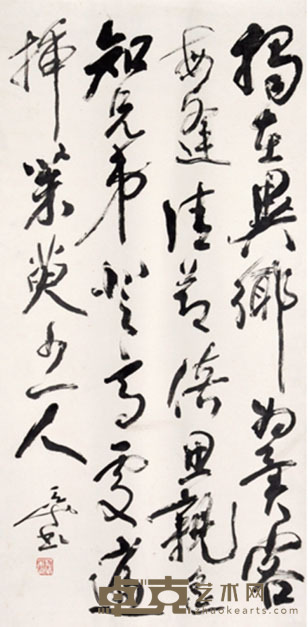 獨在異鄉為異客
每逢佳節倍思親遙
知兄弟登高處遍
插茱萸少一人
卓克艺术网
zhuokearts.com